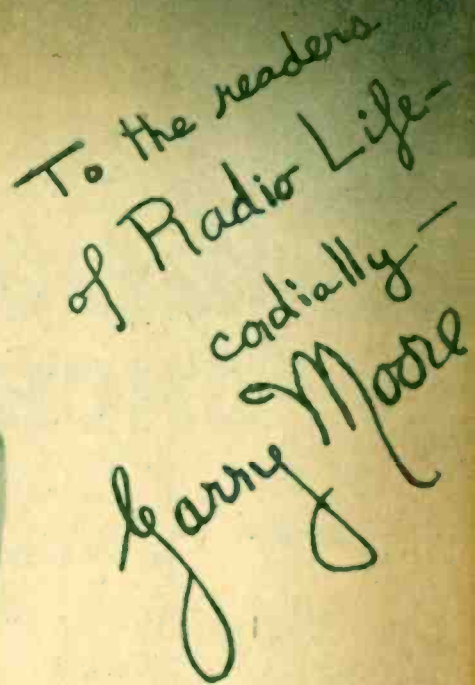 To the readers
of Radio Life-
cordially-
Garry Moore